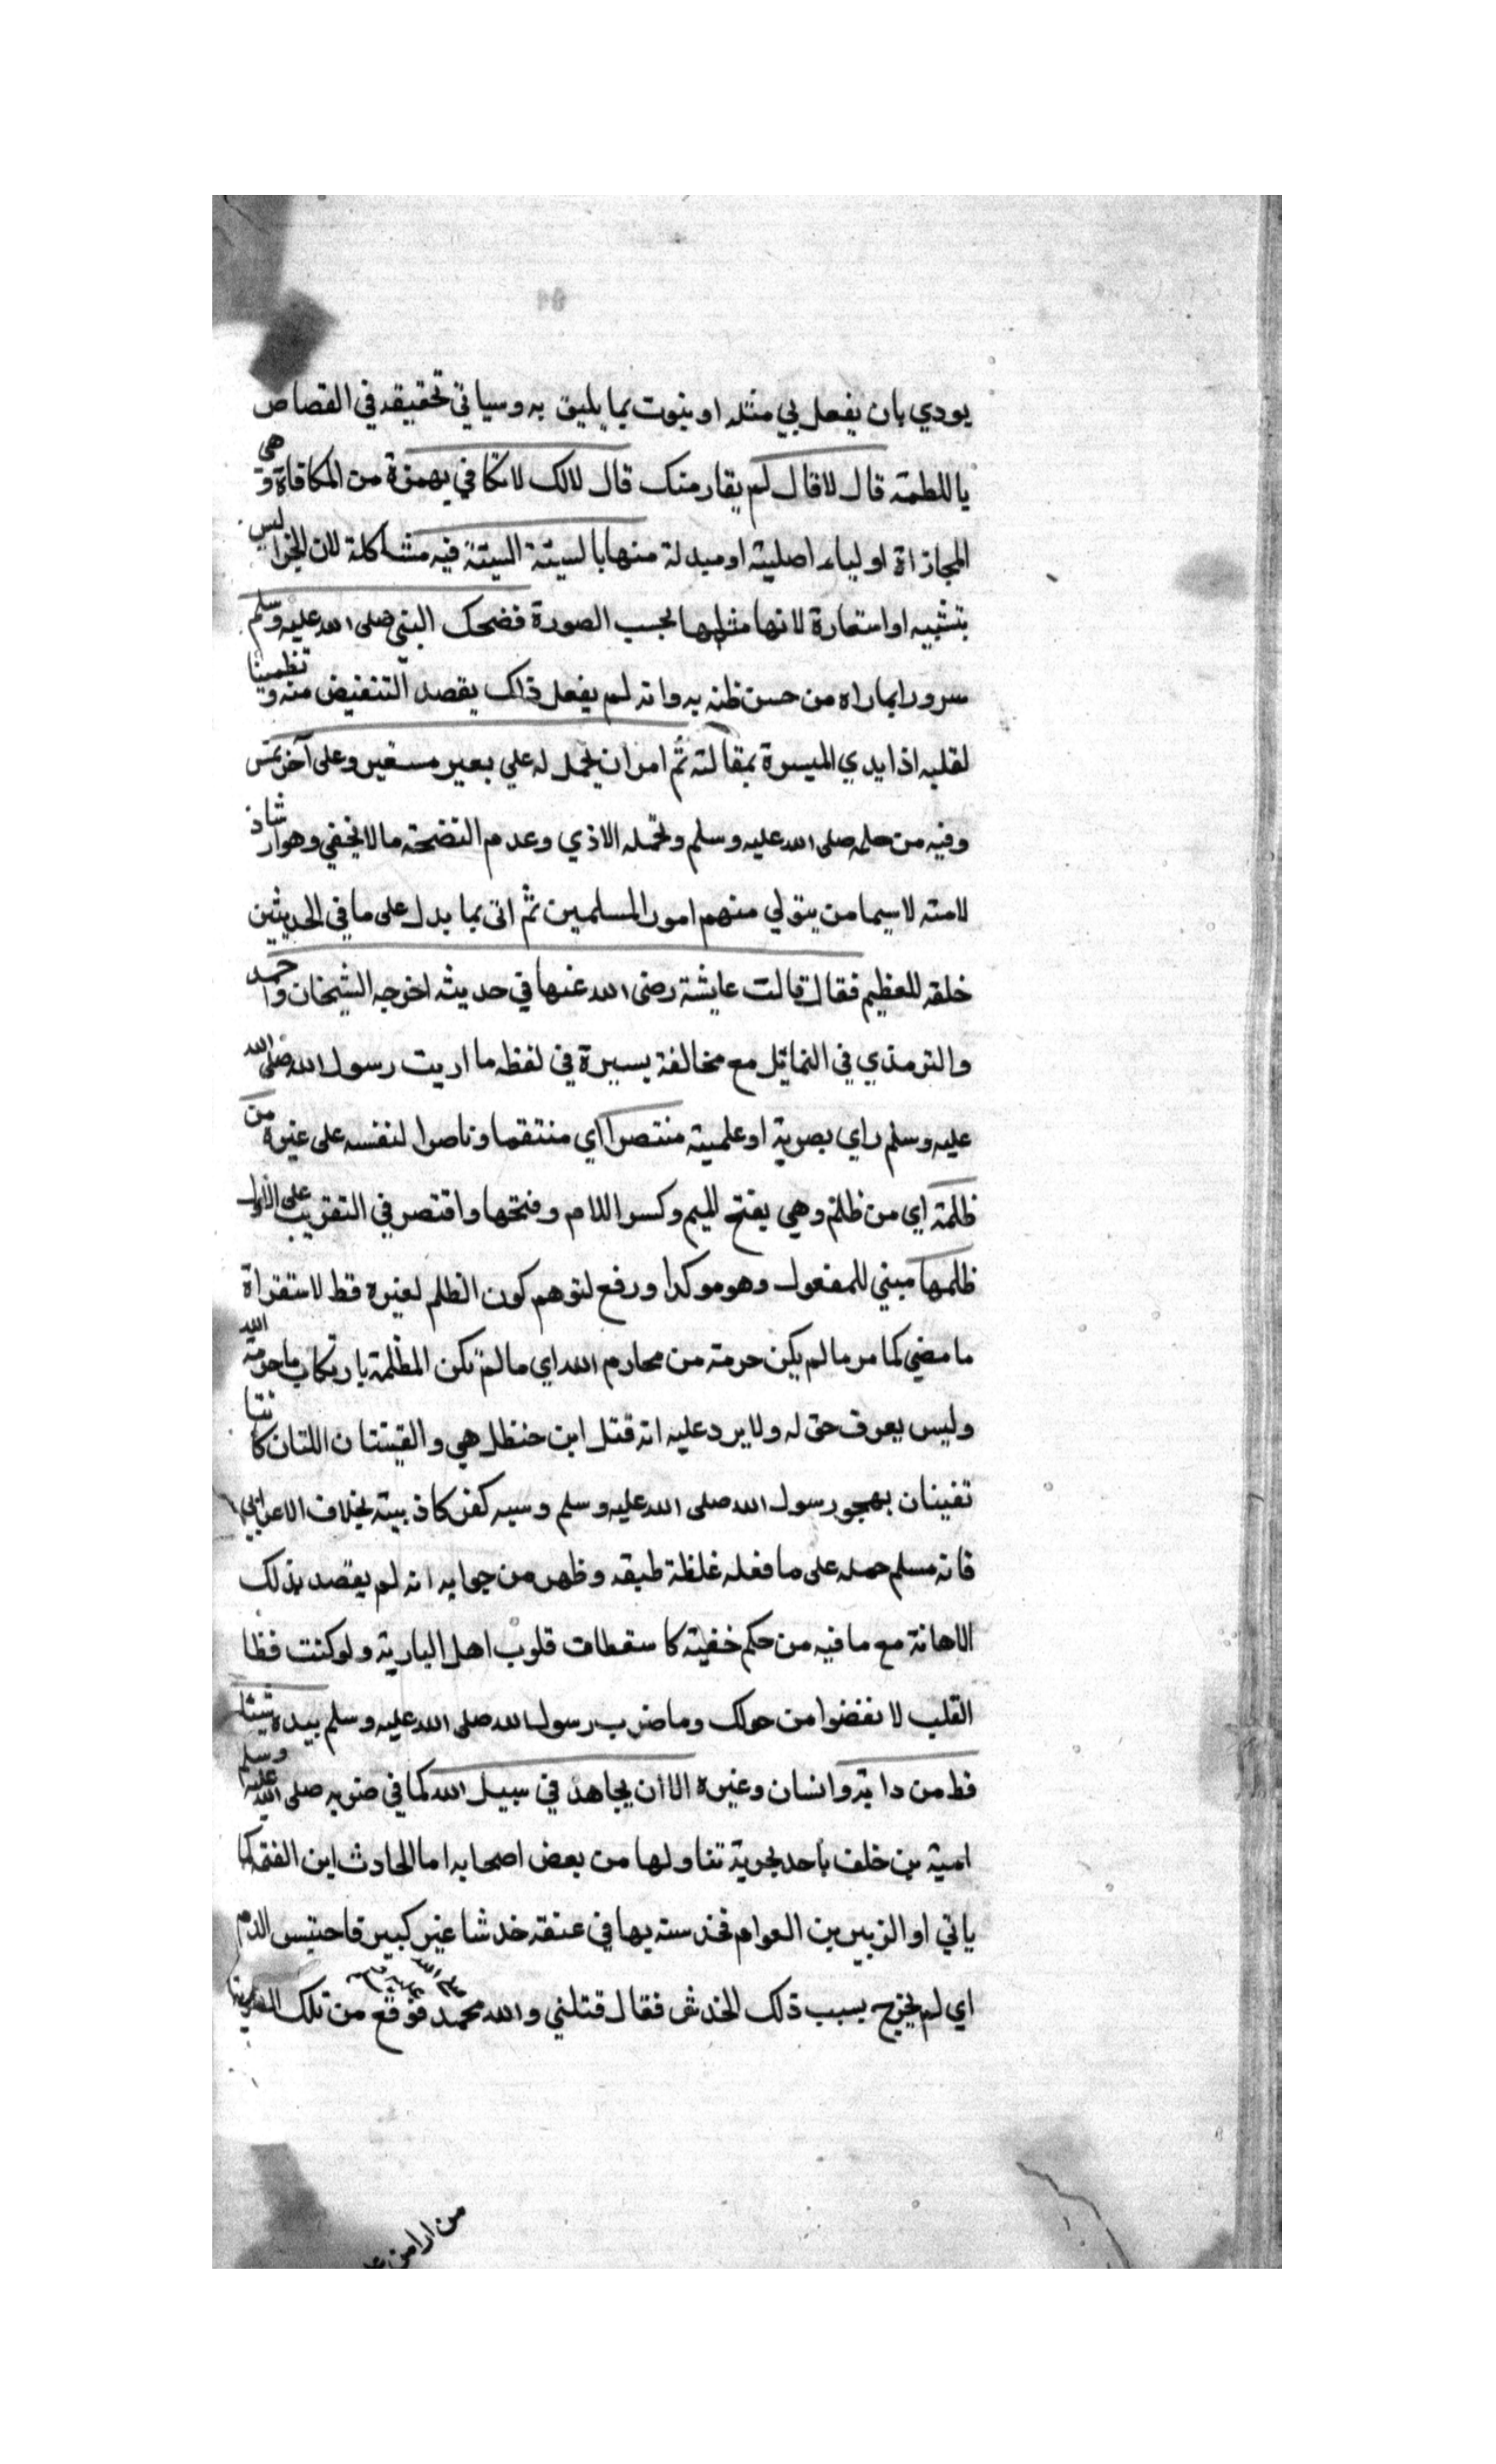 يودي بان يفعل بي مثله او ينوت بما يليق به وسياتي تحقيقه في القصاص
يا للطمة قال لا قال لم يقار منك قال لالك لا تكافي بهمزة من المكافاة وهي
المجازاة او لياء اصلية او مبدلة منها بالسيئة السيئة فيه مشاكلة لان الجزا ليس
بتشبيه او استعارة لانها مثلها بحسب الصورة فضحك النبي صلى الله عليه وسلم
سرورا بما راه من حسن ظنه به وانه لم يفعل ذلك بقصد التنغيض منه وتطمينا
لقلبه اذا يدي الميسرة بمقالته ثم امر ان يحمل له علي بعير مسعير وعلى آخر تمر
وفيه من حلمه صلى الله عليه وسلم وتحمله الاذي وعدم التضحة ما لا يخفي وهو ارشاد
لامته لاسيما من يتولي منهم امور المسلمين ثم اتى بما يدل على ما في الحديثين
خلقه للعظيم فقال قالت عايشة رضى الله عنها في حديثه اخرجه الشيخان واحمد
والترمذي في الشمائل مع مخالفة يسيرة في لفظه ما اريت رسول الله صلى الله
عليه وسلم راي بصرية او علمية منتصرا اي منتقما وناصرا لنفسه على غيره من
ظلمة اي من ظلم وهي بفتح الميم وكسر اللام وفتحها واقتصر في التقريب على الاول
ظلمها مبني للمفعول وهو موكدا ورفع لتوهم كون الظلم لغيره قط لاستقراة
ما مضي كما مر ما لم يكن حرمة من محارم الله اي ما لم تكن المظلمة بارتكاب ما حرمه الله
وليس يعرف حق له ولا يرد عليه انه قتل ابن حنظل هي والقينتان اللتان كانتا
تغنيان بهجو رسول الله صلى الله عليه وسلم وسبه كفر كاذبيته بخلاف الاعرابي
فانه مسلم حمله على ما فعله غلظة طبقه وظهر من جوابه انه لم يقصد بذلك
الاهانة مع ما فيه من حكم خفية كا سقطاف قلوب اهل البارية ولو كنت فظا
القلب لا نفضوا من حولك وما ضرب رسول الله صلى الله عليه وسلم بيده شيئا
قط من دابة وانسان وغيره الا ان يجاهد في سبيل الله كما في ضربه صلى الله عليه وسلم
امية بن خلف باحد بحربة تناولها من بعض اصحابه اما الحادث ابن الفتمه كما
ياتي او الزبير بن العوام فخدسته بها في عنقه خدشا غير كبير فاحتبس الدم
اي لم يخرج بسبب ذلك الخدش فقال قتلني والله محمد صلى الله عليه وسلم فوقع من تلك الضربة